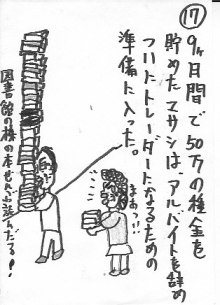 ⑰
9ヶ月間で50万の種金を
貯めたマサシは、アルバイトを辞め
ついにトレーダーになるための
準備に入った。
まぁっ!!
図書館の棚の本ぜんぶ読んだる!